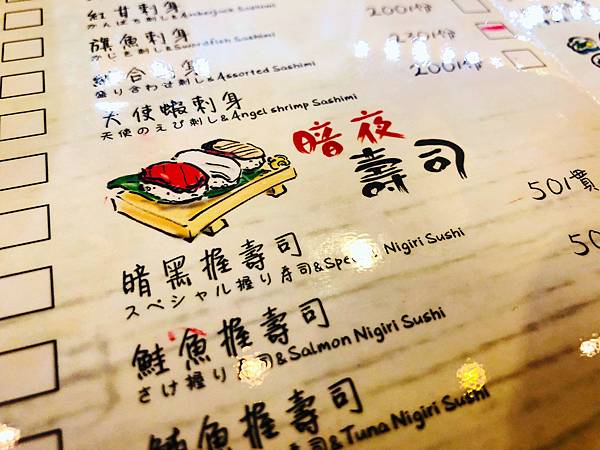 紅甘刺身
かんぱち刺し&Amberjack Sashimi
200/份
旗魚刺身
かじき刺し&Swordfish Sashimi
230/份
綜合刺身
盛り合わせ刺し&Assorted Sashimi
200/份
天使蝦刺身
天使のえび刺し&Angel shrimp Sashimi
暗夜
壽司
暗黑握壽司
50/貫
スペシャル握り寿司&Special Nigiri Sushi
鮭魚握壽司
50
さけ握り寿司&Salmon Nigiri Sushi
鮪魚握壽司
寿司&Tuna Nigiri Sushi